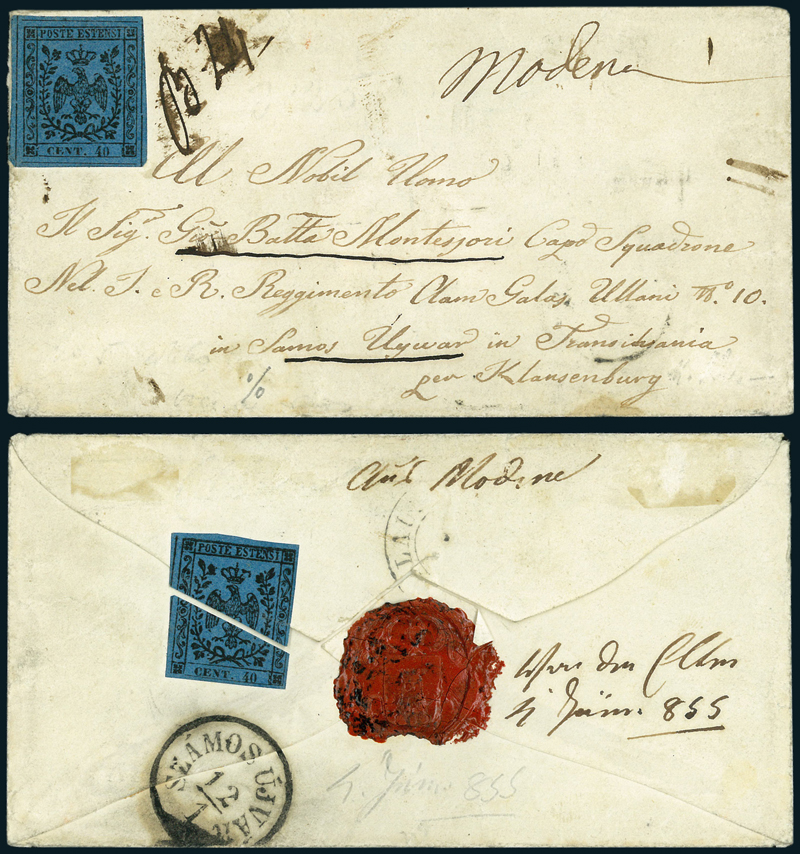 POSTE ESTENSI
CENT. 40
Modena
All Nobil Uomo
Il Sig.r Gio Batta Montessori Capo Squadrone
Nel. I. e R. Reggimento Clam Galas Ullani No. 10.
in Samos Uywar in Transilvania
per Klausenburg
%
Aus Modena
LAI
POSTE ESTENSI
CENT. 40
855
SZÁMOS ÚJVÁR
12
855